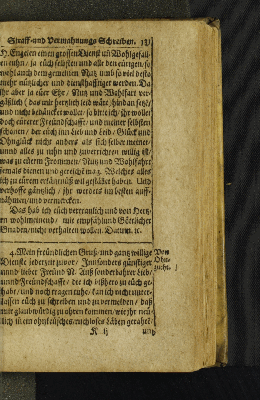 Straff-und Vermahnungs Schreiben. 131
H. Engelen einen grossen Dienst uñ Wolgefall-
en euhn/ ja euch selbsten und alle den eürigen/ so
wohl auch dem gemeinen Nutz umb so viel desto
mehr nützlicher und diensthafftiger werden. Da
ihr aber ja eüre Ehr/ Nutz und Wahlfart ver-
geßlich (das mir hertzlich leid wäre/ hindan setzē/
und nicht bedäncket wollet/ so bitte ich/ ihr wollet
doch eüerer Freündschafft/ und meiner selbsten
schonen/ der euch inn Lieb und Leid/ Glück und
Unglück nicht anders als sich selber meinet/
unnd alles zu thun und zuverrichten willig ist/
was zu eüerm Frommen/ Nutz und Wohlfahrt
jemals dienen und gereichē mag. Welches alles
ich zu eürem erkäntnüß wil gestellet haben. Und
verhoffe gäntzlich/ ihr werdets im besten auff-
nähmen/ und vermercken.
Das hab ich eüch vertraulich und von Hertz-
en wohlmeinend/ mit erwpfählung Göttlicher
Gnaden/ nicht verhalten wollen. Datum. ꝛc.
4. Mein freundlichen Gruß/ und gantz willige
Dienste jederzeit zuvor/ Innsonders günstiger
unnd lieber Freund N. Auß sonderbahrer Lieb/
unnd Freundschafft/ die ich bißhero zu euch ge-
habt/ und noch tragen tuhe/ kan ich nicht unter-
lassen euch zu schreiben und zu vermelden/ daß
mir glaubwürdig zu ohren kommen/ wie ihr neu-
lich in ein ohnkeusches/ ruchloses Läben gerahtē/
K ij und
Von
Ohn-
zucht.